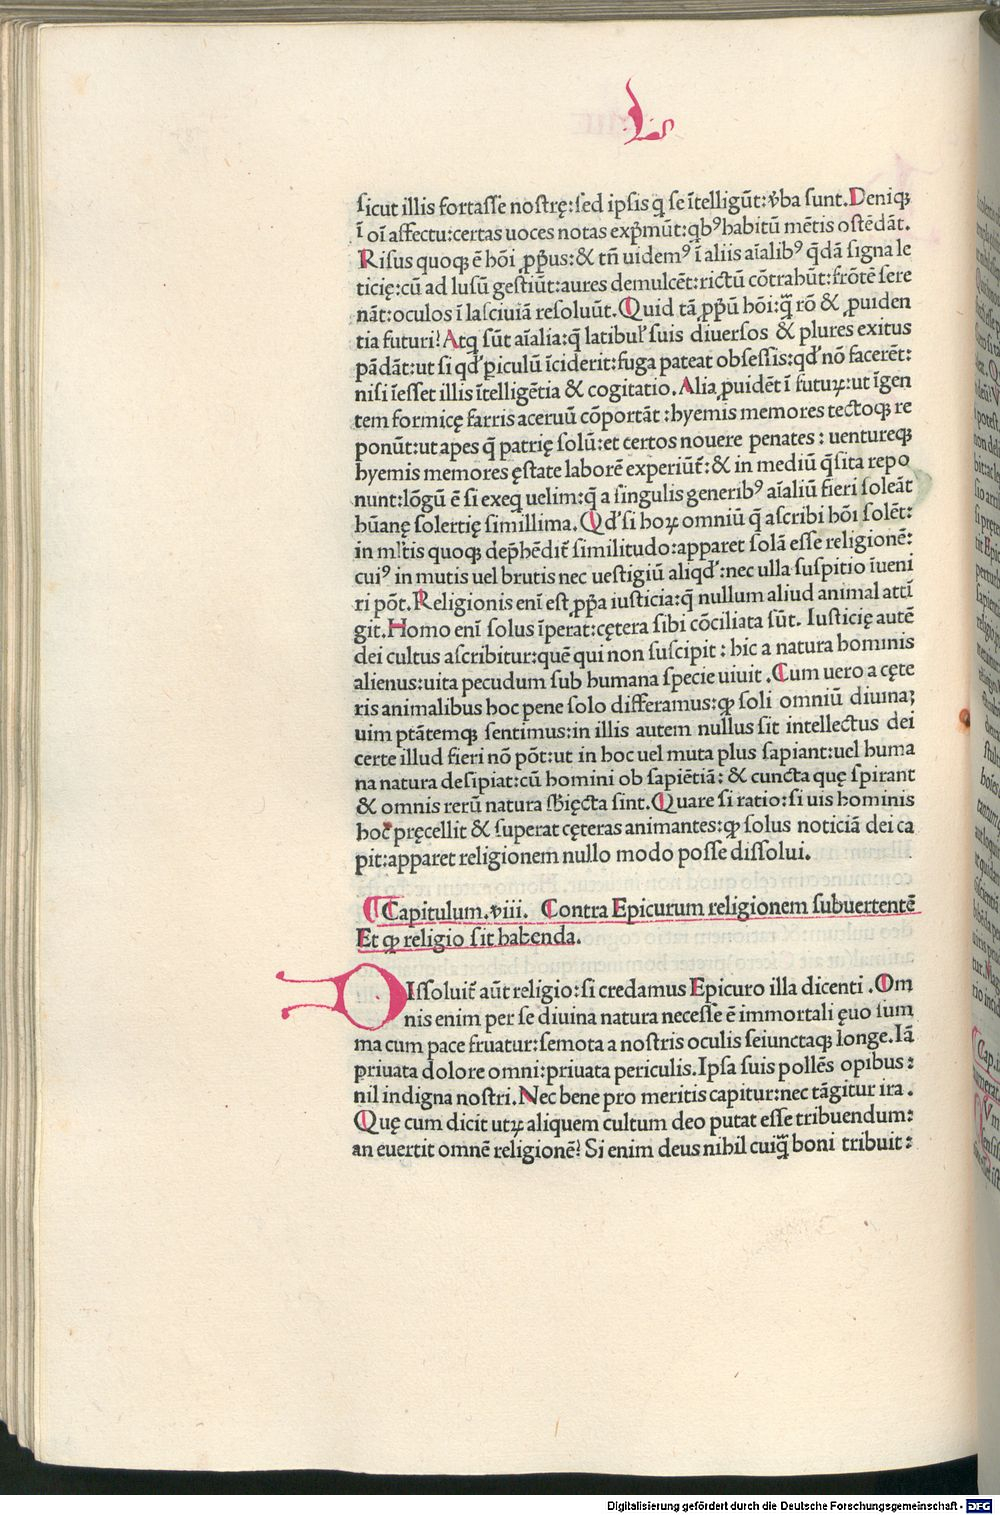 L
ſicut illis fortaſſe noſtrę:ſed ipſis q̄ ſe ītelligūt:v̓ba ſunt.Deniqꝫ
ī oī affectu:certas uoces notas exp̄mūt:qbꝰ habitū mētis oſtēdāt.
Riſus quoqꝫ ē hōi ꝓpꝓus:& tn̄ uidemꝰ ī aliis aīalibꝰ q̄dā ſigna le
ticię:cū ad luſū geſtiūt:aures demulcēt:rictū cōtrahūt:frōtē ſere
nāt:oculos ī laſciuiā reſoluūt.Quid tā ꝓpꝓū hōi:q̄ꝫ rō & ꝓuiden
tia futuri?Atq ſūt aīalia:q̄ latibul̓ ſuis diuerſos & plures exitus
pādāt:ut ſi qd̓ ꝑiculū īciderit:fuga pateat obſeſſis:qd̓ nō facerēt:
niſi īeſſet illis ītelligētia & cogitatio.Alia ꝓuidēt ī futuꝝ:ut īgen
tem formicę farris aceruū cōportāt:hyemis memores tectoqꝫ re
ponūt:ut apes q̄ patrię ſolū:et certos nouere penates: uentureqꝫ
hyemis memores ęſtate laborē experiūt̄:& in mediū q̄ſita repo
nunt:lōgū ē ſi exeq uelim:q̄ a ſingulis generibꝰ aīaliū fieri ſoleāt
hūanę ſolertię ſimillima.Qd̓ ſi hoꝝ omniū q̄ aſcribi hōi ſolēt:
in ml̓tis quoqꝫ dep̄hēdit̄ ſimilitudo:apparet ſolā eſſe religionē:
cuiꝰ in mutis uel brutis nec ueſtigiū aliqd̓:nec ulla ſuſpitio īueni
ri pōt.Religionis enī eſt ꝓpꝓa iuſticia:q̄ nullum aliud animal attī
git.Homo enī ſolus īperat:cętera ſibi cōciliata ſūt. Iuſticię autē
dei cultus aſcribitur:quē qui non ſuſcipit: hic a natura hominis
alienus:uita pecudum ſub humana ſpecie uiuit.Cum uero a cęte
ris animalibus hoc pene ſolo differamus:ꝙ ſoli omniū diuinaꝫ
uim ptātemqꝫ ſentimus:in illis autem nullus ſit intellectus dei
certe illud fieri nō pōt:ut in hoc uel muta plus ſapiant:uel huma
na natura deſipiat:cū homini ob ſapiētiā: & cuncta quę ſpirant
& omnis rerū natura ſb̓ięcta ſint.Quare ſi ratio:ſi uis hominis
hoc pręcellit & ſuperat cęteras animantes:ꝙ ſolus noticiā dei ca
pit:apparet religionem nullo modo poſſe diſſolui.
¶Capitulum.viii. Contra Epicurum religionem ſubuertentē
Et ꝙ religio ſit habenda.
DIſſoluit̄ aūt religio:ſi credamus Epicuro illa dicenti.Om
nis enim per ſe diuina natura neceſſe ē immortali ęuo ſum
ma cum pace fruatur:ſemota a noſtris oculis ſeiunctaqꝫ longe.Iā
priuata dolore omni:priuata periculis.Ipſa ſuis pollēs opibus:
nil indigna noſtri.Nec bene pro meritis capitur:nec tāgitur ira.
Quę cum dicit utꝝ aliquem cultum deo putat eſſe tribuendum:
an euertit omnē religionē? Si enim deus nihil cuiq̄ꝫ boni tribuit:
Digitalisierung gefördert durch die Deutsche Forschungsgemeinschaft - DFG